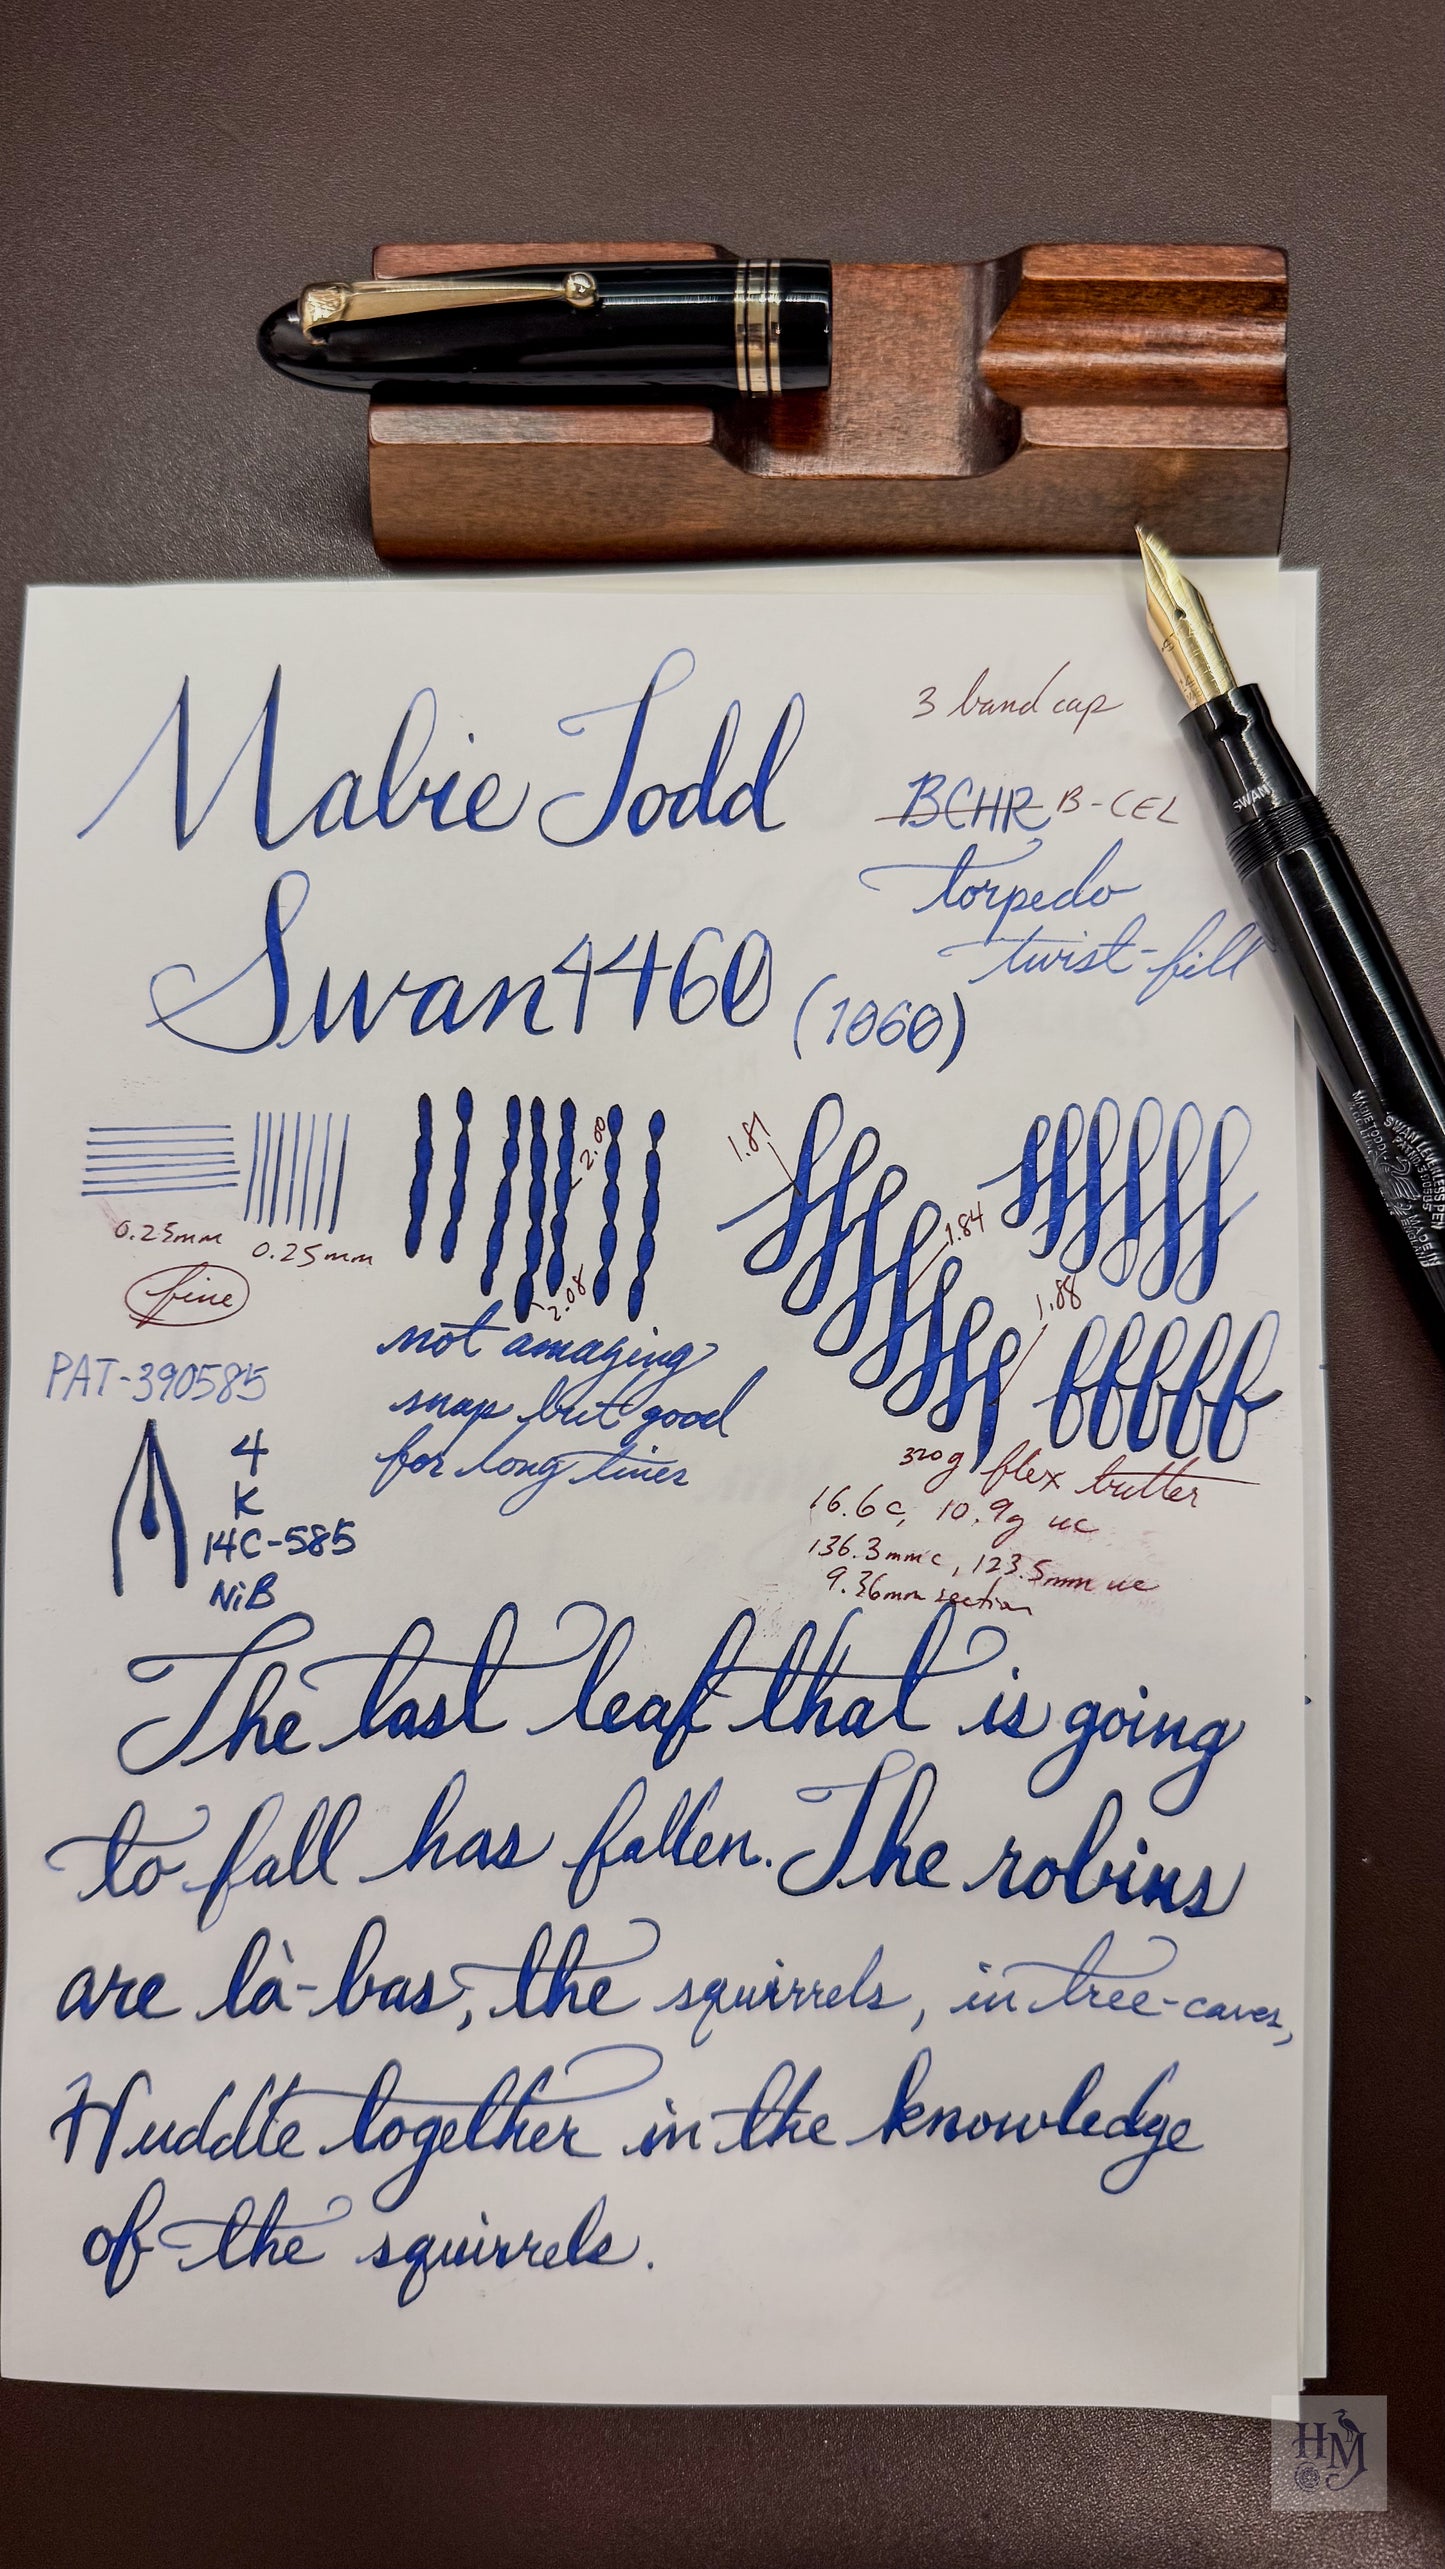 Mabie Todd
3 band cap
BCHR B-CEL
torpedo
twist-fill
Swan 4460 (1060)
0.25mm
0.25mm
fine
2.00
2.08
1.81
1.84
1.88
not amazing
snap but good
for long tines
PAT-390585
4
K
14C-585
NiB
320g flex butter
16.6c, 10.9g uc
136.3mm c, 123.5mm uc
9.36mm section
The last leaf that is going
to fall has fallen. The robins
are là-bas, the squirrels, in tree-caves,
Huddle together in the knowledge
of the squirrels.
SWAN
SWAN LEVERLESS PEN
PAT. No. 390585
MABIE TODD & CO. LTD.
HM